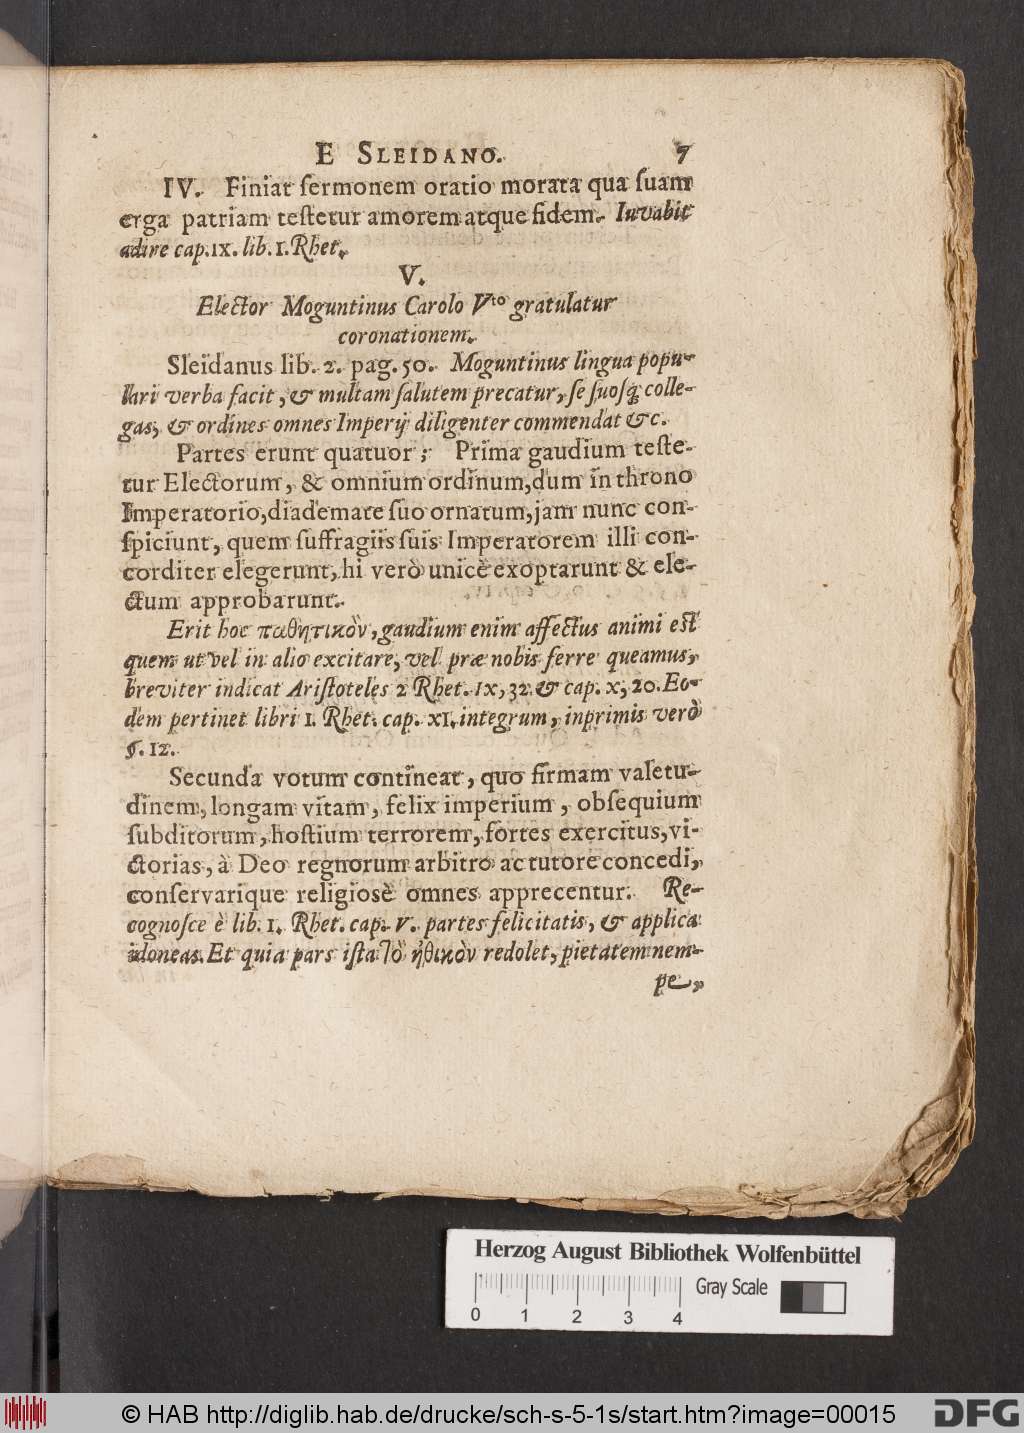 E SLEIDANO. 7
IV. Finiat ſermonem oratio morata qua ſuam
erga patriam teſtetur amorem atque fidem. Iuvabit
adire cap. IX. lib. I. Rhet.
V.
Elector Moguntinus Carolo Vto gratulatur
coronationem.
Sleidanus lib. 2. pag. 50. Moguntinus lingua popu-
lari verba facit, & multam ſalutem precatur, ſe ſuoſq; colle-
gas, & ordines omnes Imperij diligenter commendat &c.
Partes erunt quatuor; Prima gaudium teſte-
tur Electorum, & omnium ordinum, dum in throno
Imperatorio, diademate ſuo ornatum, jam nunc con-
ſpiciunt, quem ſuffragiis ſuis Imperatorem illi con-
corditer elegerunt, hi verò unicè exoptarunt & ele-
ctum approbarunt.
Erit hoc παθητικὸν, gaudium enim affectus animi eſt
quem ut vel in alio excitare, vel præ nobis ferre queamus,
breviter indicat Ariſtoteles 2 Rhet. IX, 32. & cap. X, 20. Eo-
dem pertinet libri I. Rhet. cap. XI. integrum, inprimis verò
§. 12.
Secunda votum contineat, quo firmam valetu-
dinem, longam vitam, felix imperium, obſequium
ſubditorum, hoſtium terrorem, fortes exercitus, vi-
ctorias, à Deo regnorum arbitro ac tutore concedi,
conſervarique religiosè omnes apprecentur. Re-
cognoſce è lib. I. Rhet. cap. V. partes felicitatis, & applica
idoneas. Et quia pars iſta τὸ ἠθικὸν redolet, pietatem nem-
pe,
Herzog August Bibliothek Wolfenbüttel
Gray Scale
0 1 2 3 4
© HAB http://diglib.hab.de/drucke/sch-s-5-1s/start.htm?image=00015
DFG